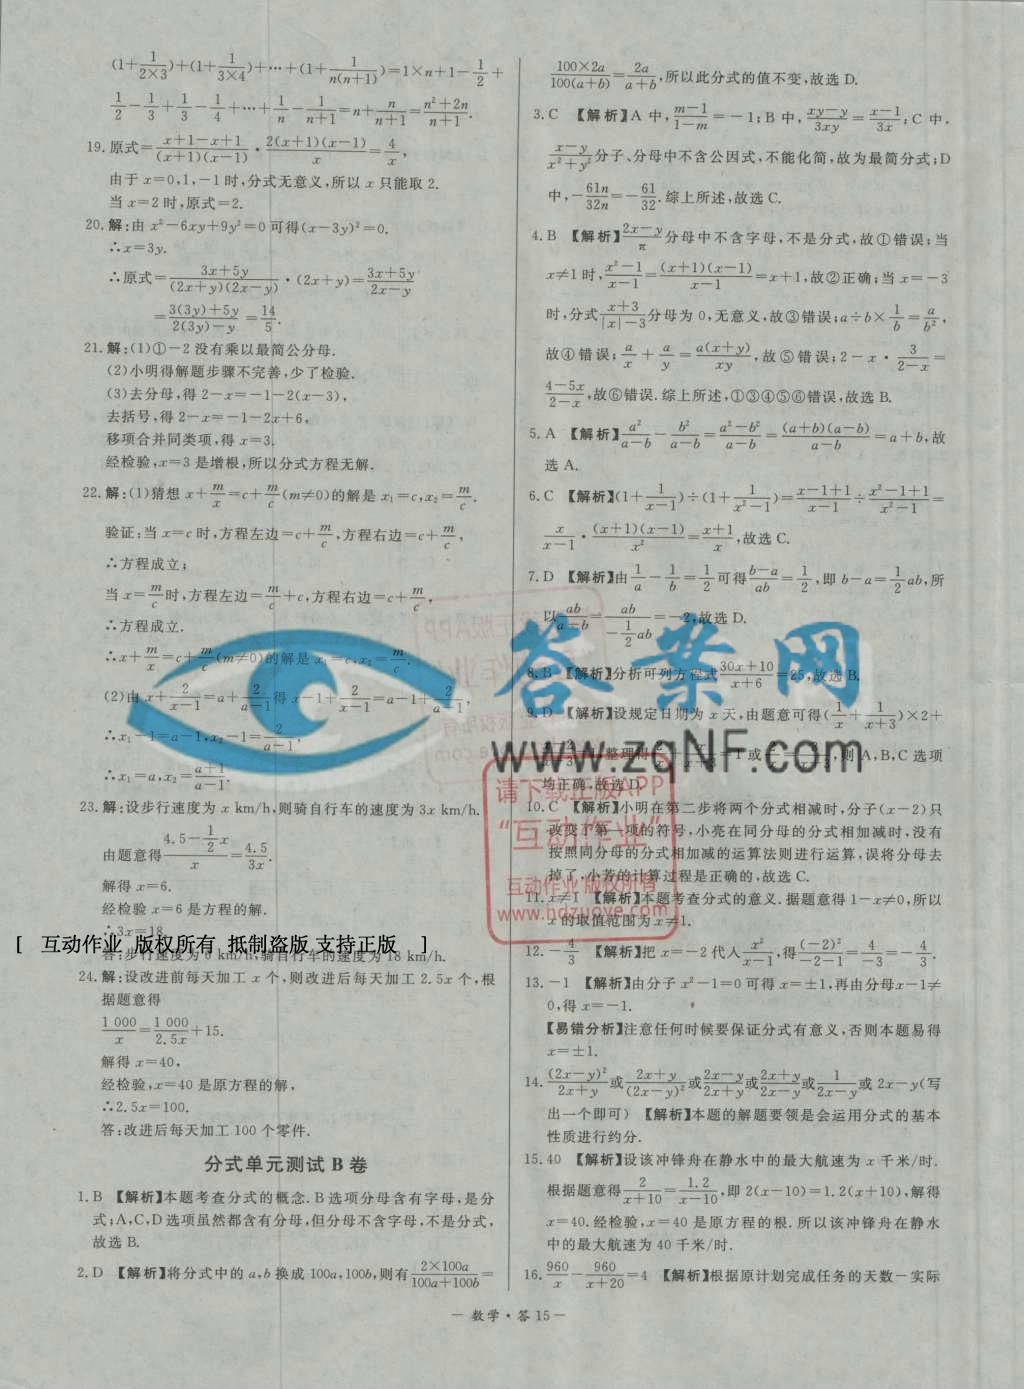 (1+1/(2×3))+(1+1/(3×4))+…+(1+1/(n(n+1)))=1×n+1-1/2+
1/2-1/3+1/3-1/4+…+1/n-1/(n+1)=n+n/(n+1)=(n²+2n)/(n+1).
19.原式=(x+1-x+1)/((x+1)(x-1))·2(x+1)(x-1)/x=4/x,
由于x=0,1,-1时,分式无意义,所以x只能取2.
当x=2时,原式=2.
20.解:由x²-6xy+9y²=0可得(x-3y)²=0.
∴x=3y.
∴原式=(3x+5y)/((2x+y)(2x-y))·(2x+y)=(3x+5y)/(2x-y)
=(3(3y)+5y)/(2(3y)-y)=14/5.
21.解:(1)①-2没有乘以最简公分母.
(2)小明得解题步骤不完善,少了检验.
(3)去分母,得2-x=-1-2(x-3),
去括号,得2-x=-1-2x+6,
移项合并同类项,得x=3.
经检验,x=3是增根,所以分式方程无解.
22.解:(1)猜想x+m/x=c+m/c(m≠0)的解是x₁=c,x₂=m/c.
验证:当x=c时,方程左边=c+m/c,方程右边=c+m/c,
∴方程成立;
当x=m/c时,方程左边=m/c+c,方程右边=c+m/c,
∴方程成立.
∴x+m/x=c+m/c(m≠0)的解是x₁=c,x₂=m/c.
(2)由x+2/(x-1)=a+2/(a-1)得x-1+2/(x-1)=a-1+2/(a-1),
∴x₁-1=a-1,x₂-1=2/(a-1),
∴x₁=a,x₂=(a+1)/(a-1).
23.解:设步行速度为x km/h,则骑自行车的速度为3x km/h.
由题意得(4.5-1/2x)/x=4.5/3x.
解得x=6.
经检验x=6是方程的解.
∴3x=18.
[ 互动作业 版权所有 抵制盗版 支持正版 ]
答:步行速度为6 km/h,骑自行车的速度为18 km/h.
24.解:设改进前每天加工x个,则改进后每天加工2.5x个,根
据题意得
1 000/x=1 000/2.5x+15.
解得x=40,
经检验,x=40是原方程的解,
∴2.5x=100.
答:改进后每天加工100个零件.
分式单元测试B卷
1.B 【解析】本题考查分式的概念.B选项分母含有字母,是分
式;A,C,D选项虽然都含有分母,但分母不含字母,不是分式,
故选B.
2.D 【解析】将分式中的a,b换成100a,100b,则有(2×100a)/(100a+100b)=
(100×2a)/(100(a+b))=2a/(a+b),所以此分式的值不变,故选D.
3.C 【解析】A中,(m-1)/(1-m)=-1;B中,(xy-y)/3xy=(x-1)/3x;C中,
(x-y)/(x²+y²)分子、分母中不含公因式,不能化简,故为最简分式;D
中,-61n/32n=-61/32.综上所述,故选C.
4.B 【解析】(2x-y)/π分母中不含字母,不是分式,故①错误;当
x≠1时,(x²-1)/(x-1)=(x+1)(x-1)/(x-1)=x+1,故②正确;当x=-3
时,分式(x+3)/(|x|-3)分母为0,无意义,故③错误;a÷b×1/b=a/b²,
故④错误;a/x+a/y=a(x+y)/xy,故⑤错误;2-x·3/(2-x)=
(4-5x)/(2-x),故⑥错误.综上所述,①③④⑤⑥错误,故选B.
5.A 【解析】a²/(a-b)-b²/(a-b)=(a²-b²)/(a-b)=(a+b)(a-b)/(a-b)=a+b,故
选A.
6.C 【解析】(1+1/(x-1))÷(1+1/(x²-1))=(x-1+1)/(x-1)÷(x²-1+1)/(x²-1)=
x/(x-1)·(x+1)(x-1)/x²=(x+1)/x,故选C.
7.D 【解析】由1/a-1/b=1/2可得(b-a)/ab=1/2,即b-a=1/2ab,所
以ab/(a-b)=ab/(-1/2ab)=-2,故选D.
8.B 【解析】分析可列方程式(30x+10)/(x+6)=25,故选B.
9.D 【解析】设规定日期为x天,由题意可得(1/x+1/(x+3))×2+
整理得 则A,B,C选项
均正确,故选D.
10.C 【解析】小明在第二步将两个分式相减时,分子(x-2)只
改变了第一项的符号,小亮在同分母的分式相加减时,没有
按照同分母的分式相加减的运算法则进行运算,误将分母去
掉了,小芳的计算过程是正确的,故选C.
11.x≠1 【解析】本题考查分式的意义.据题意得1-x≠0,所以
x的取值范围为x≠1.
12.-4/3 【解析】把x=-2代入x²/(x-1),得(-2)²/(-2-1)=4/-3=-4/3.
13.-1 【解析】由分子x²-1=0可得x=±1,再由分母x-1≠
0,得x=-1.
【易错分析】注意任何时候要保证分式有意义,否则本题易得
x=±1.
14.(2x-y)²/(2x+y)或(2x+y)/(2x-y)²或(2x-y)/(2x+y)或(2x+y)/(2x-y)或1/(2x-y)或2x-y(写
出一个即可) 【解析】本题的解题要领是会运用分式的基本
性质进行约分.
15.40 【解析】设该冲锋舟在静水中的最大航速为x千米/时.
根据题意得2/(x+10)=1.2/(x-10),即2(x-10)=1.2(x+10),解得
x=40.经检验,x=40是原方程的根.所以该冲锋舟在静水
中的最大航速为40千米/时.
16.960/x-960/(x+20)=4 【解析】根据原计划完成任务的天数-实际
— 数学·答15 —
答案网
www.zqNF.com
请下载正版APP
“互动作业”
互动作业 版权所有
www.hdzuoye.com